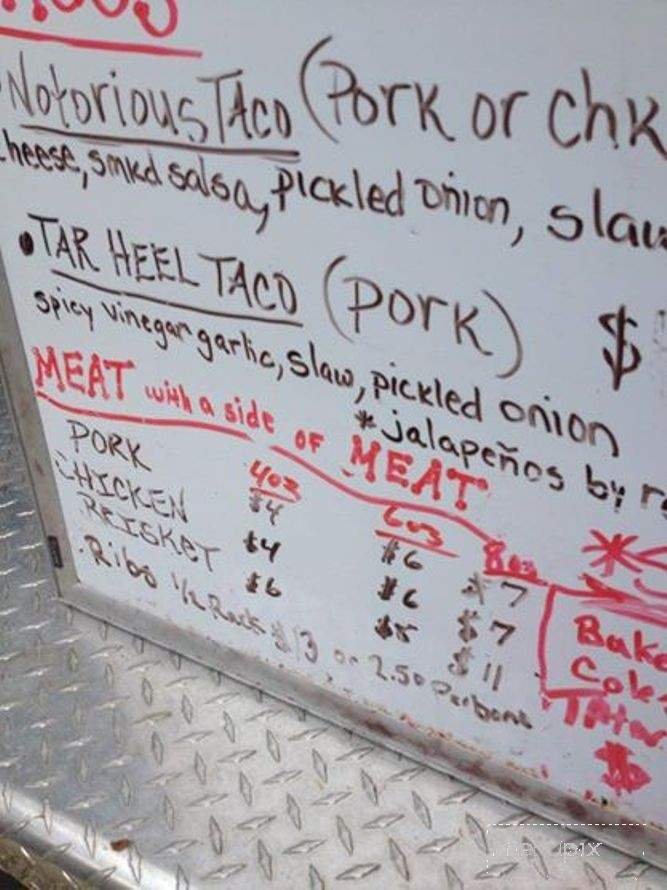 Notorious TACO (Pork or chk
cheese, smkd salsa, pickled onion, slaw
• TAR HEEL TACO (PORK) $
spicy vinegar garlic, slaw, pickled onion
*jalapeños by r
MEAT with a side OF MEAT
4oz 6oz 8oz
PORK $4 $6 $7
CHICKEN $4 $6 $7
BRISKET $6 $8 $11
Ribs 1/2 Rack $13 or 2.50 Per bone
Bake
Cole
$